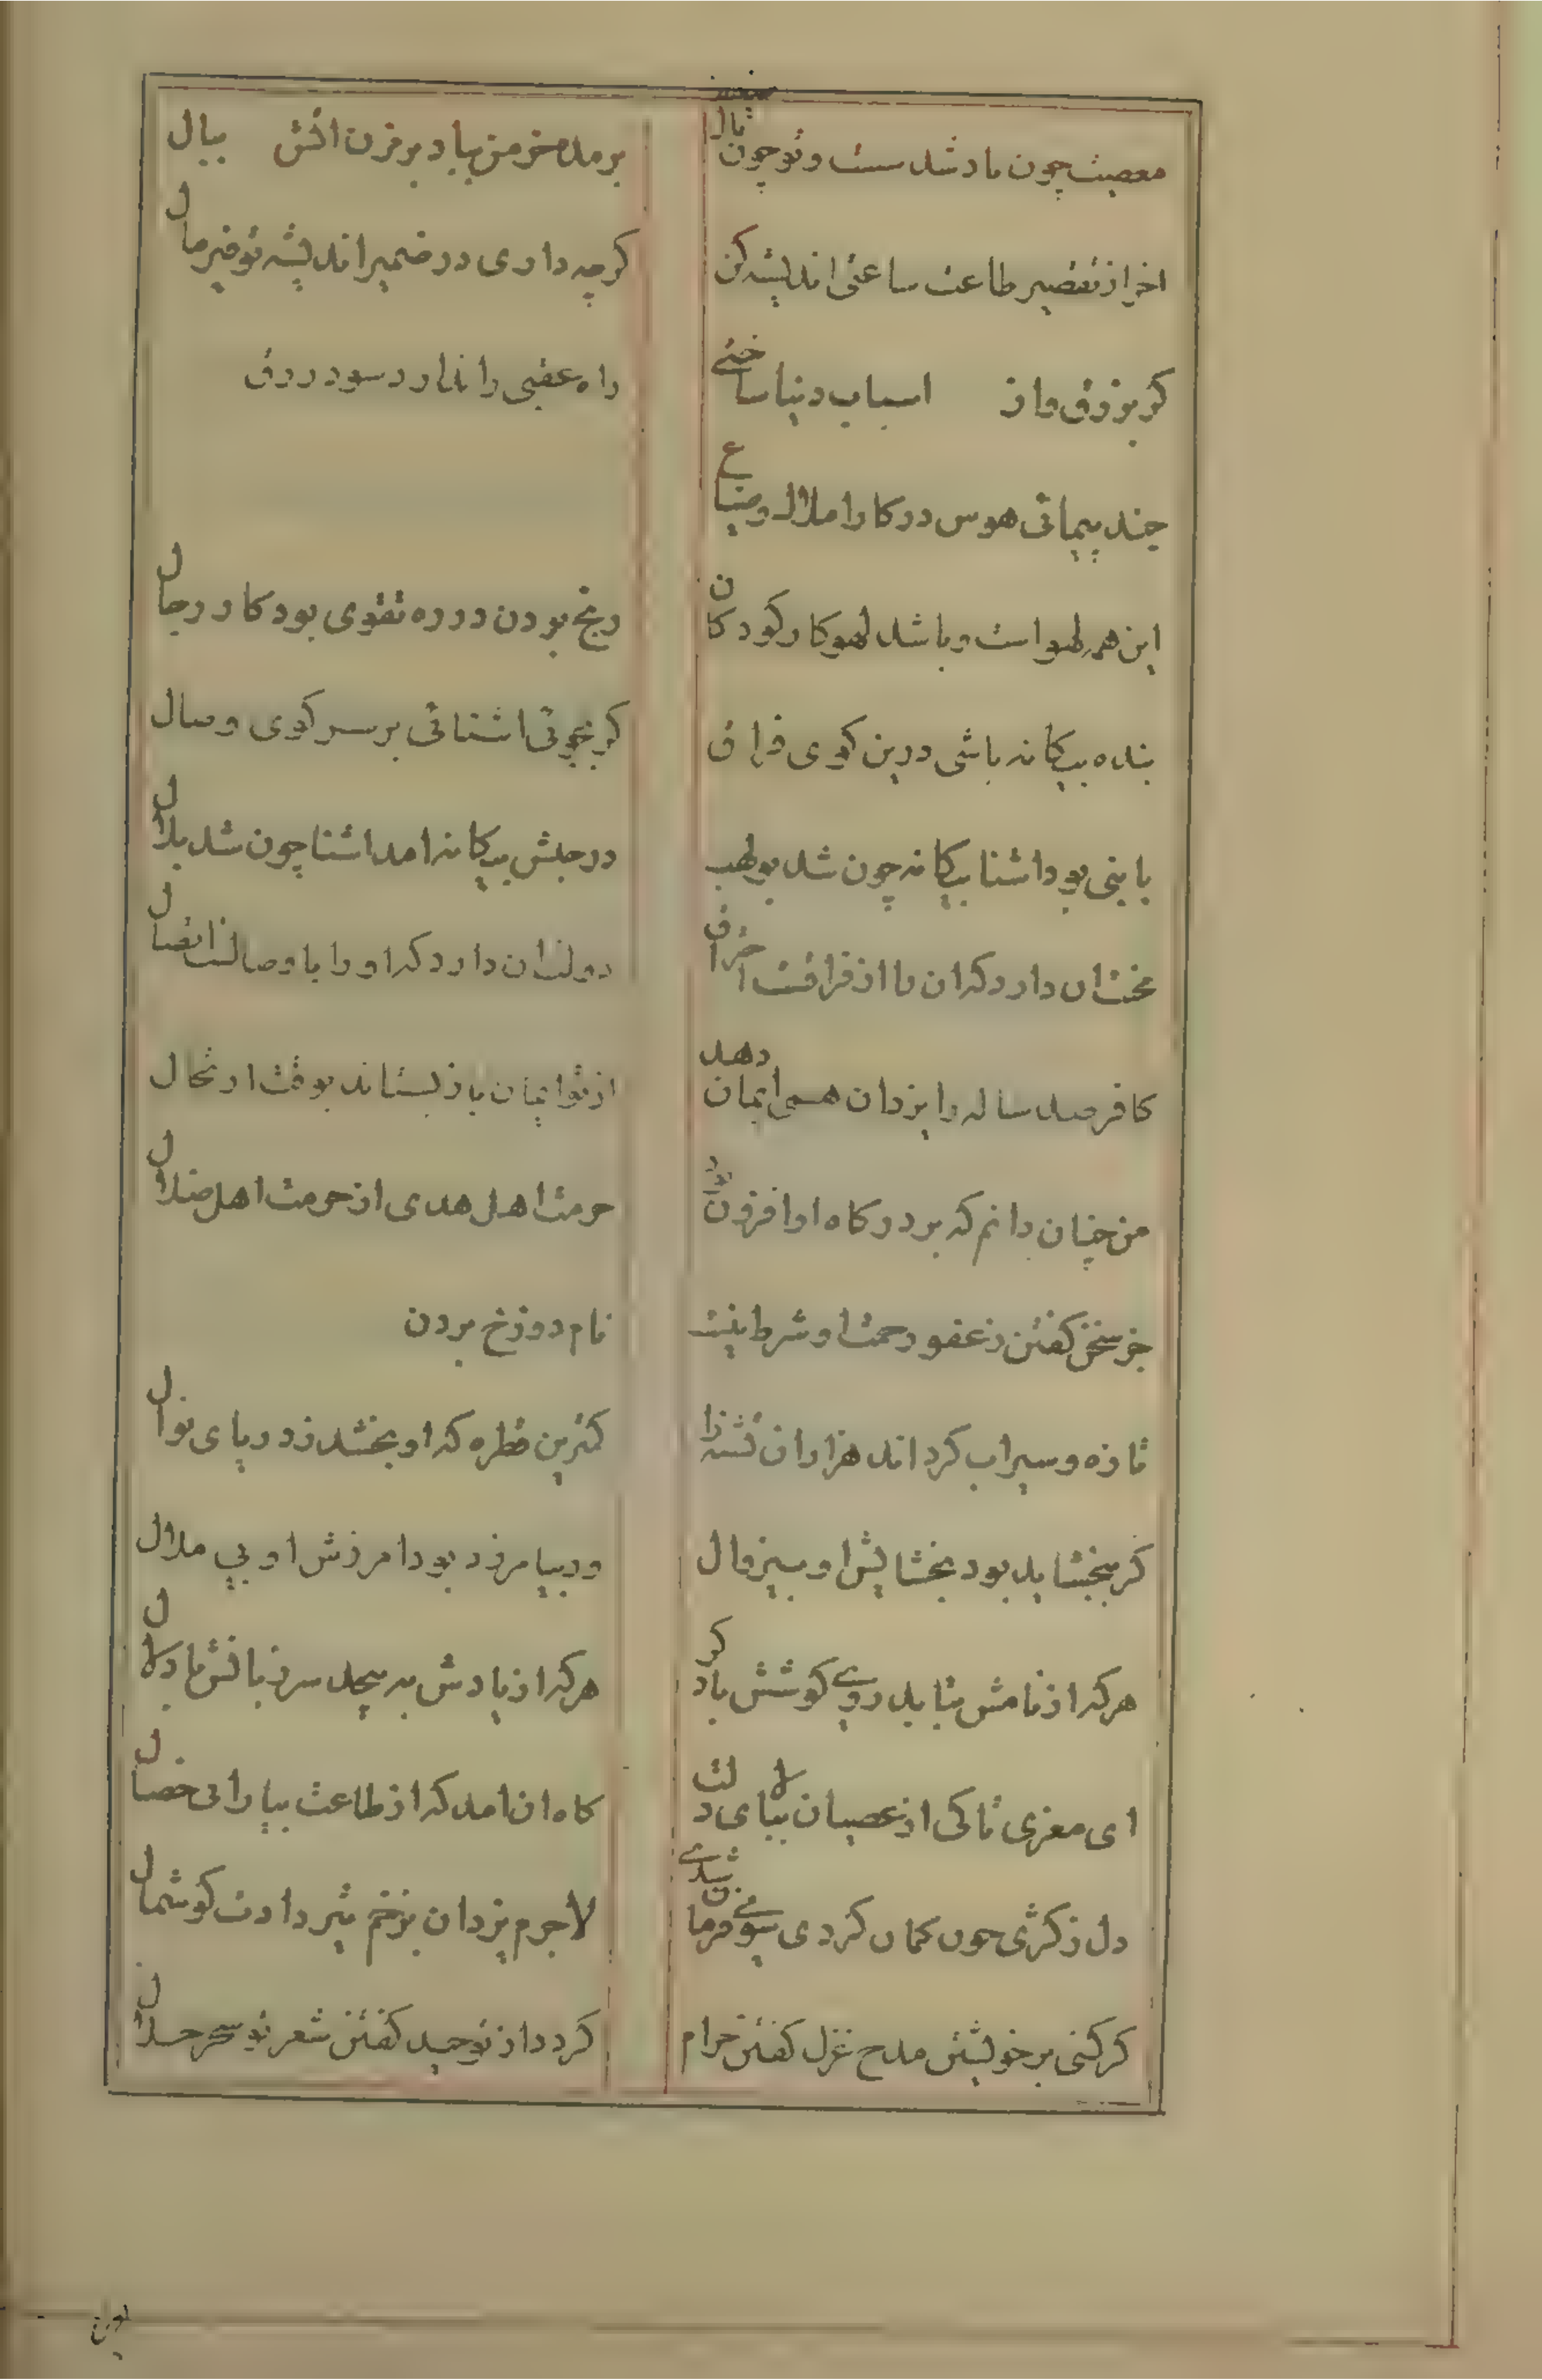 معصیت چون باد شد سست و تو چون
بر مده خرمن بباد بر مزن اتش ببال
اخر از تقصیر طاعت ساعتی اندیشه کن
کرچه داری در ضمیر اندیشه توفیر مال
کر بزرق و از اسباب دنیا ساختی
راه عقبی را ندارد سود زرق
چند پیمائی هوس در کار املاک و ضیاع
این همه لهو است و باشد لهو کار کودکان
رنج بردن در ره تقوی بود کار رجال
بنده بیکانه باشی درین کوی فراق
کر نجوئی اشنائی بر سر کوی وصال
با نبی بود اشنا بیکانه چون شد بولهب
در حبش بیکانه امد اشنا چون شد بلال
محنت ان دارد که ان را از فراقست احتراق
دولت ان دارد که او را با وصالست اتصال
کافر صد ساله را یزدان همی ایمان دهد
از تو ایمان باز بستاند بوقت ارتحال
من چنان دانم که بر درکاه او افزون
حرمت اهل هدی از حرمت اهل ضلال
جز سخن کفتن ز عفو و رحمت او شرط نیست
نام دوزخ بردن
تازه و سیراب کرداند هزاران تشنه را
کمترین قطره که او بخشد ز دریای نوال
کر ببخشاید بود بخشایش او بی زوال
ور بیامرزد بود امرزش او بی ملال
هرکه از نامش بتابد روی کوشش باد کر
هرکه از یادش به پیچد سر زبانش باد لال
ای معزی تا کی از عصیان بیالای دلت
کاه ان امد که از طاعت بیارائی خصال
دل ز کژی چون کمان کردی بسوی
لاجرم یزدان بزخم تیر دادت کوشمال
کر کنی بر خویشتن مدح غزل کفتن حرام
کردد از توحید کفتن شعر تو سحر حلال